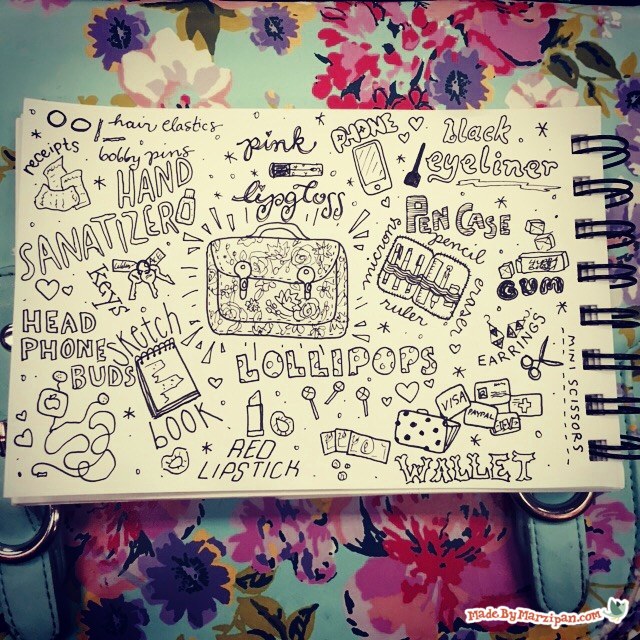 hair elastics
receipts
bobby pins
HAND
SANATIZER
pink
lipgloss
PHONE
black
eyeliner
PEN CASE
microns
pencil
eraser
ruler
GUM
KEYS
HEAD
PHONE
BUDS
sketch
book
LOLLIPOPS
EARRINGS
MINI SCISSORS
RED
LIPSTICK
VISA
PAYPAL
WALLET
MadeByMarzipan.com